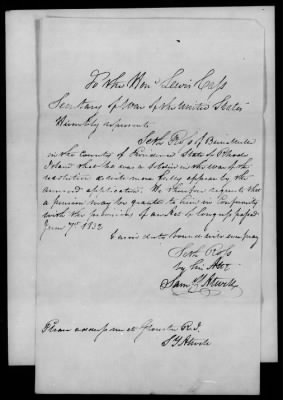 To the Hon. Lewis Cass
Secretary of War of the United States
Humbly represents
Seth Ross of Burrillville
in the County of Providence State of Rhode
Island that he was a soldier in the war of the
revolution as will more fully appear by the
annexed application. He therefore requests that
a pension may be granted to him in conformity
with the provisions of an Act of Congress passed
June 7th 1832
&
Seth Ross
by his Attor.
Saml. Y. Atwell
Please answer me at Glocester R.I.
S Y Atwell